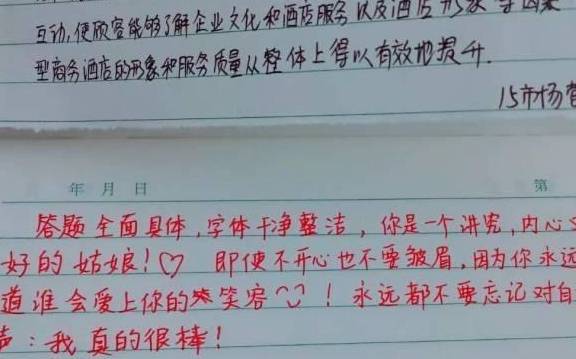 互动,使顾客能够了解企业文化和酒店服务以及酒店形象
型商务酒店的形象和服务质量从整体上得以有效地提升.
15市杨
年 月 日 第
答题全面具体,字体干净整洁,你是一个讲究,内心
好的姑娘!♡ 即使不开心也不要皱眉,因为你永远
道谁会爱上你的笑容^◡^!永远都不要忘记对自
声:我真的很棒!